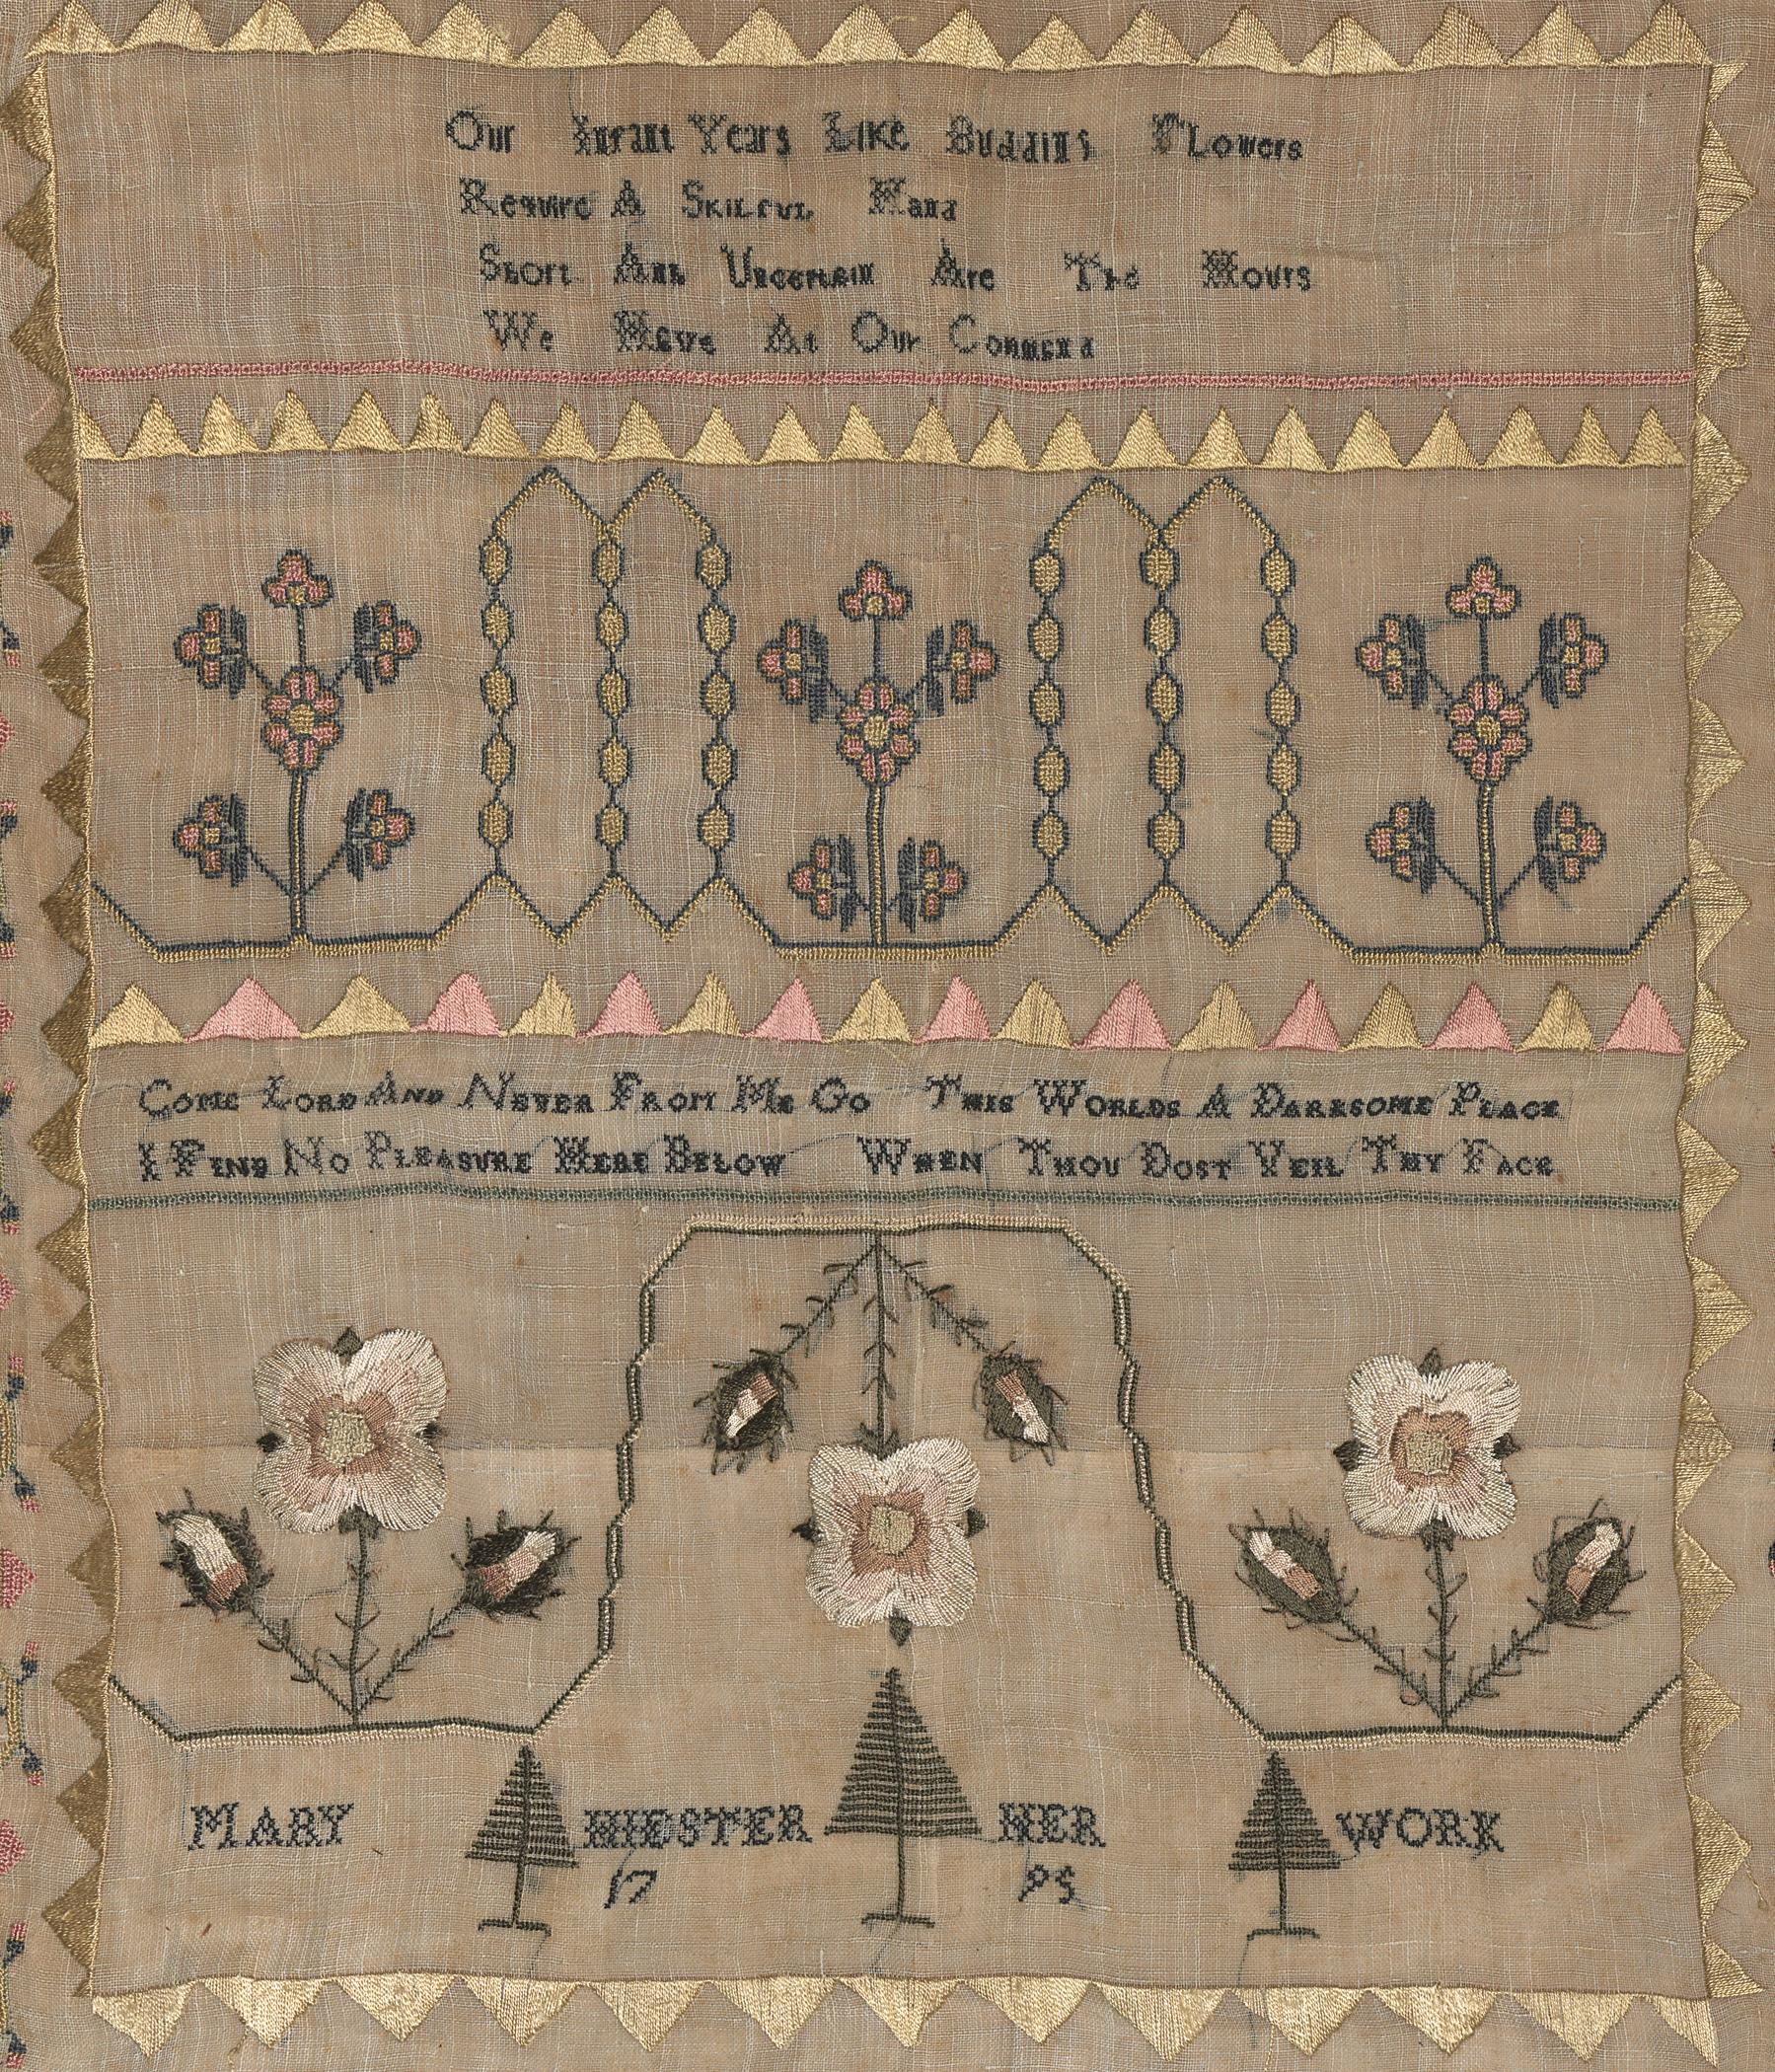 Our Infant Years Like Budding Flowers
Require A Skilful Hand
Short And Uncertain Are The Hours
We Have At Our Command
Come Lord And Never From Me Go This Worlds A Darksome Place
I Find No Pleasure Here Below When Thou Dost Veil Thy Face
MARY HIESTER HER WORK
17 95